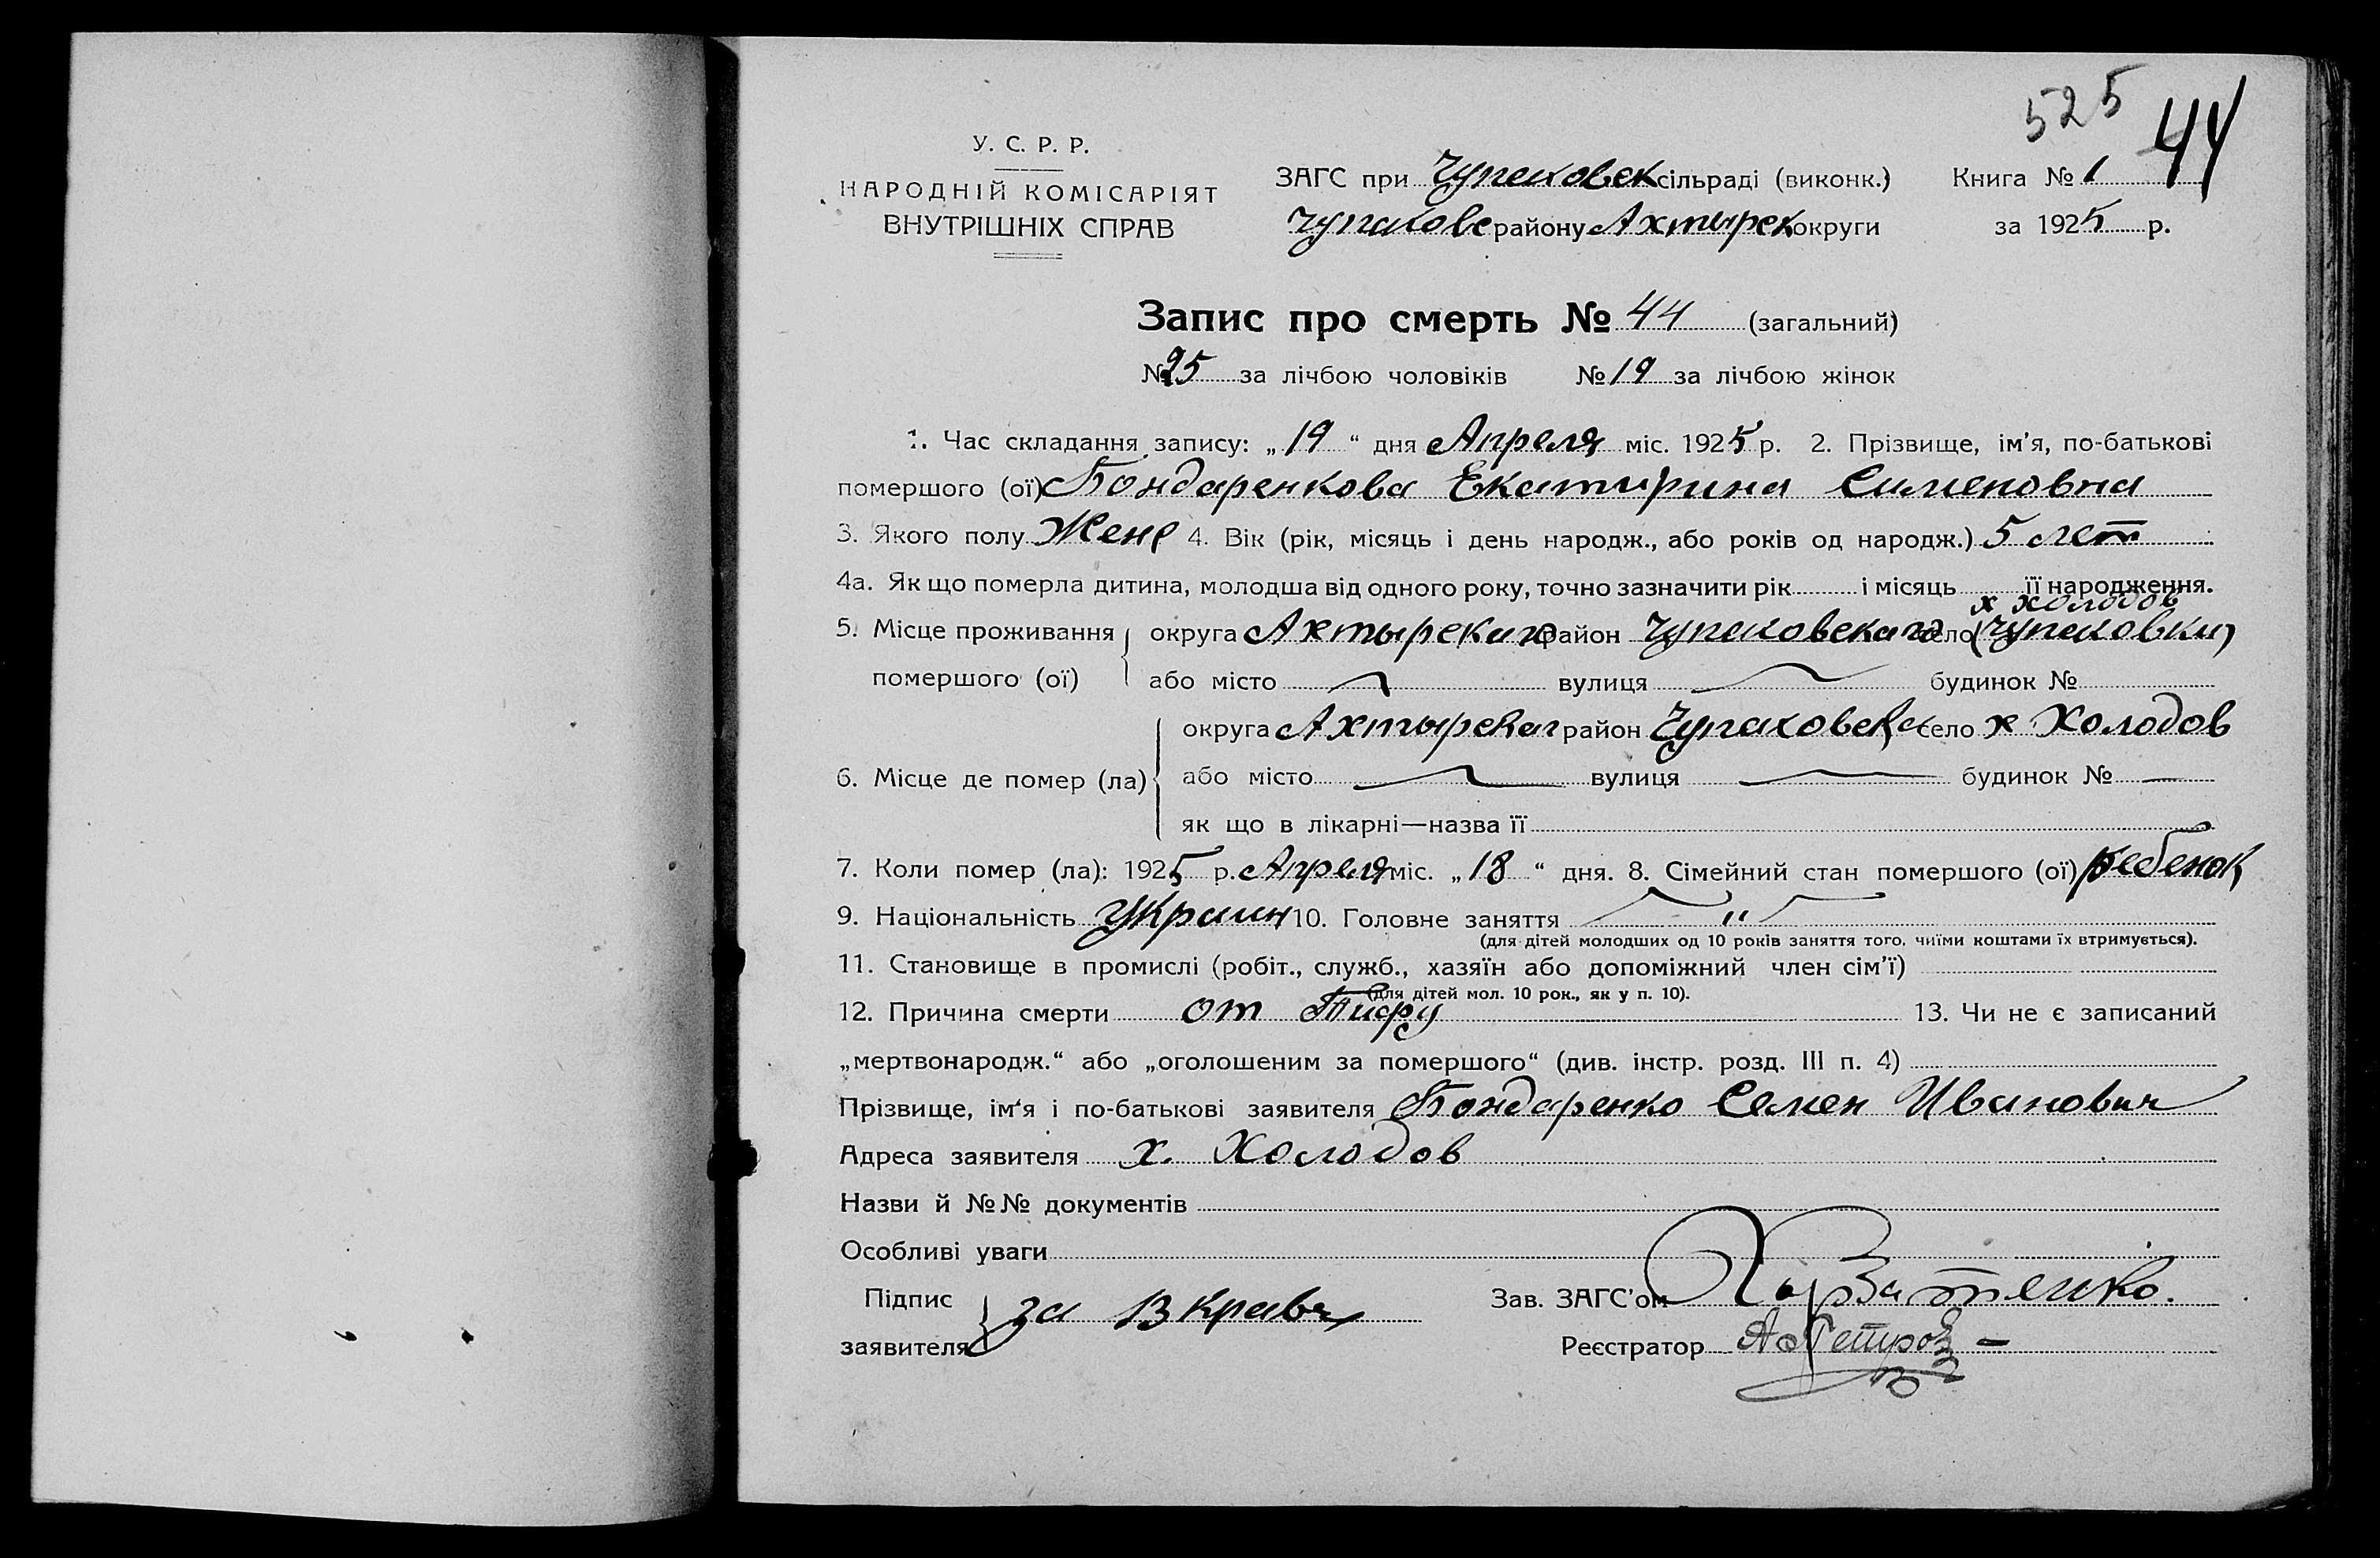 525 44
У. С. Р. Р.
НАРОДНІЙ КОМІСАРІЯТ
ВНУТРІШНІХ СПРАВ
ЗАГС при Чупаховск сільраді (виконк.) Книга № 1
Чупаховс району Ахтырск округи за 1925 р.
Запис про смерть № 44 (загальний)
№ 25 за лічбою чоловіків № 19 за лічбою жінок
1. Час складання запису: „19“ дня Апреля міс. 1925 р. 2. Прізвище, ім'я, по-батькові
помершого (ої) Бондаренкова Екатирина Сименовна
3. Якого полу Жен 4. Вік (рік, місяць і день народж., або років од народж.) 5 лет
4а. Як що померла дитина, молодша від одного року, точно зазначити рік і місяць її народження.
х холодов
5. Місце проживання округа Ахтырскаго район Чупаховскаго село (Чупаховки)
помершого (ої) або місто вулиця будинок №
округа Ахтырскаг район Чупаховск село х Холодов
6. Місце де помер (ла) або місто вулиця будинок № —
як що в лікарні—назва її
7. Коли помер (ла): 1925 р. Апреля міс. „18“ дня. 8. Сімейний стан помершого (ої) ребенок
9. Національність Украин 10. Головне заняття "
(для дітей молодших од 10 років заняття того, чиїми коштами їх втримується).
11. Становище в промислі (робіт., служб., хазяїн або допоміжний член сім'ї)
(для дітей мол. 10 рок., як у п. 10).
12. Причина смерти от Тифу 13. Чи не є записаний
„мертвонародж.“ або „оголошеним за помершого“ (див. інстр. розд. III п. 4)
Прізвище, ім'я і по-батькові заявителя Бондаренко Семен Иванович
Адреса заявителя х. Холодов
Назви й №№ документів
Особливі уваги
Підпис за В Кравч Зав. ЗАГС'ом
заявителя Реєстратор А Петров